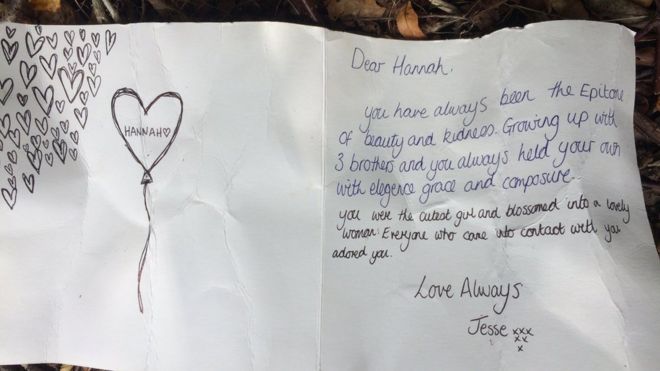 HANNAH♡
Dear Hannah,
you have always been the Epitone
of beauty and kidness. Growing up with
3 brothers and you always held your own
with elegence grace and composure..
you were the cutest girl and blossomed into a lovely
woman. Everyone who came into contact with you
adored you.
Love Always
Jesse xxx
xx
x